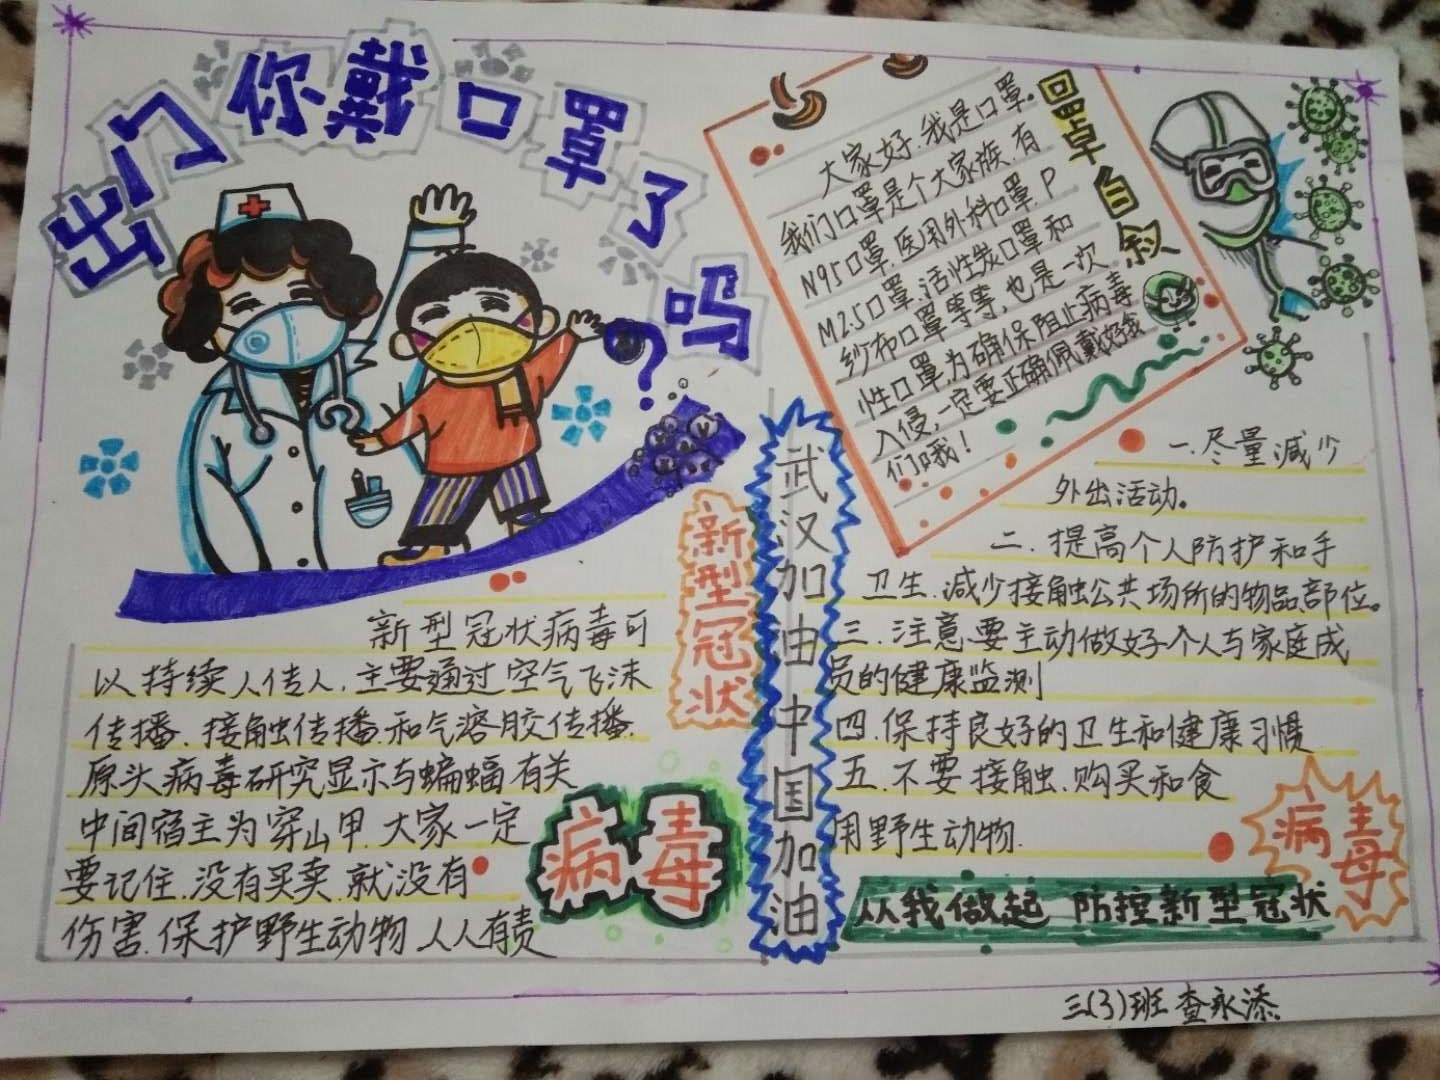 出门你戴口罩了吗?
口罩自叙
大家好.我是口罩。
我们口罩是个大家族.有
N95口罩.医用外科口罩.P
M2.5口罩.活性炭口罩和
纱布口罩等等,也是一次
性口罩,为确保阻止病毒
入侵,一定要正确佩戴好我
们哦!
新型冠状
病毒
新型冠状病毒可
以持续人传人.主要通过空气飞沫
传播.接触传播.和气溶胶传播.
原头病毒研究显示与蝙蝠有关
中间宿主为穿山甲.大家一定
要记住.没有买卖.就没有
伤害.保护野生动物人人有责
武汉加油中国加油
一.尽量减少
外出活动。
二.提高个人防护和手
卫生.减少接触公共场所的物品部位。
三.注意要主动做好个人与家庭成
员的健康监测
四.保持良好的卫生和健康习惯
五.不要接触.购买和食
用野生动物.
从我做起 防控新型冠状
病毒
三(3)班 查永添